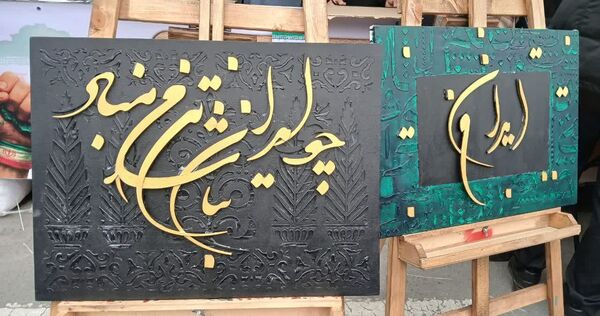 چو ایران نباشد تن من مباد
ایران من